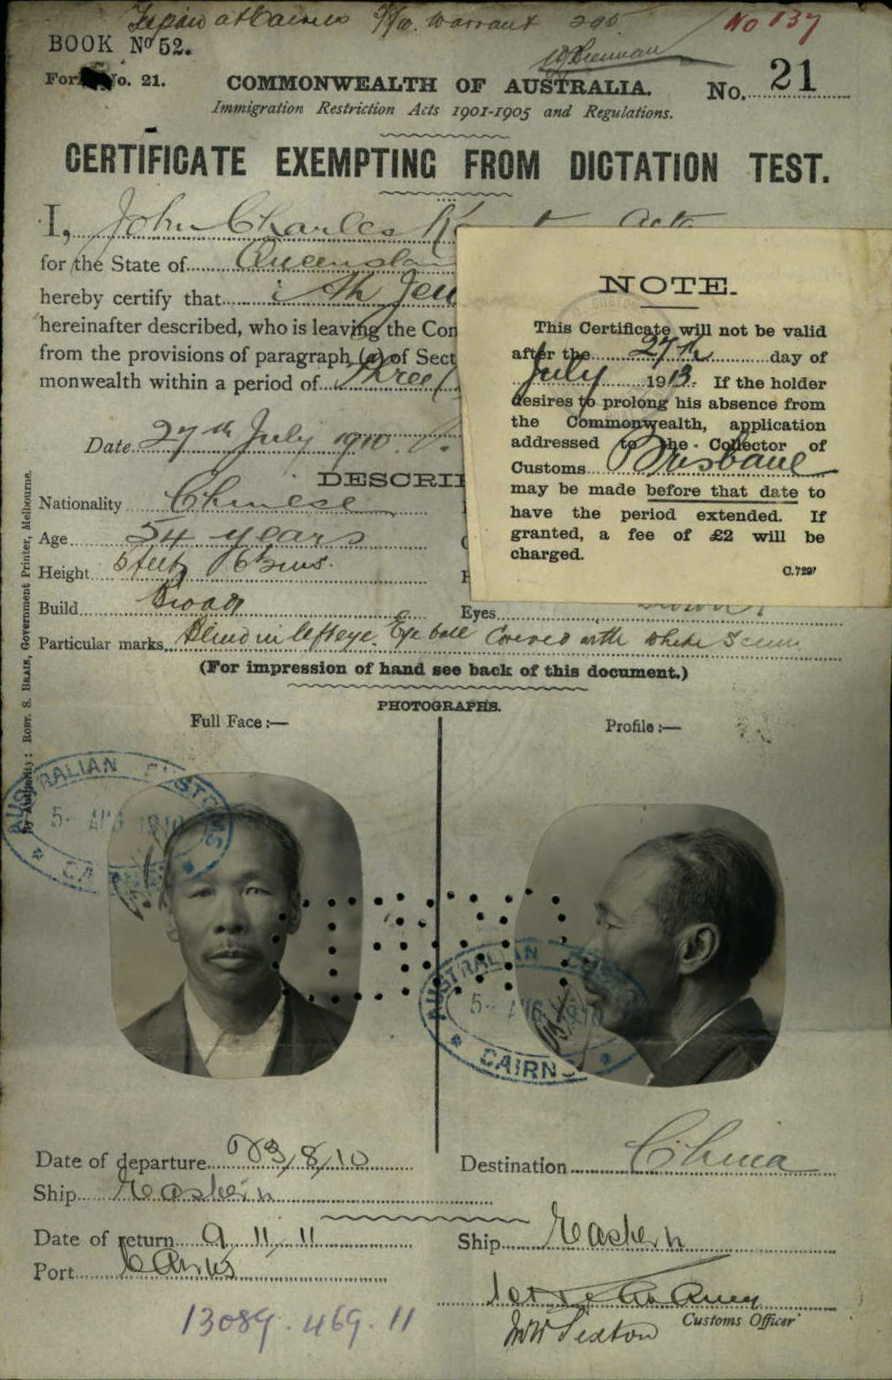 at Cairns warrant
No 137
BOOK No 52.
Form No. 21.
COMMONWEALTH OF AUSTRALIA.
No. 21
Immigration Restriction Acts 1901-1905 and Regulations.
CERTIFICATE EXEMPTING FROM DICTATION TEST.
I, John Charles
for the State of Queensla
hereby certify that
hereinafter described, who is leaving the Con
from the provisions of paragraph (a) of Sect
monwealth within a period of three
Date 27th July 1910.
DESCRI
Nationality Chinese
Age 54 years
Height 5 feet
Build Broad
Eyes
Particular marks Blind in left eye. Eye ball covered with white
(For impression of hand see back of this document.)
NOTE.
This Certificate will not be valid
after the 27th day of
July 1913. If the holder
desires to prolong his absence from
the Commonwealth, application
addressed to the Collector of
Customs Brisbane
may be made before that date to
have the period extended. If
granted, a fee of £2 will be
charged.
C.729
By Authority: ROBT. S. BRAIN, Government Printer, Melbourne.
PHOTOGRAPHS.
Full Face:—
Profile:—
AUSTRALIAN CUSTOMS
5- AUG 1910
CA
AUSTRALIAN
5- AUG 1910
CAIRNS
Date of departure 3/8/10
Destination China
Ship Eastern
Date of return 9.11.11
Ship Eastern
Port Cairns
Customs Officer
13089.469.11